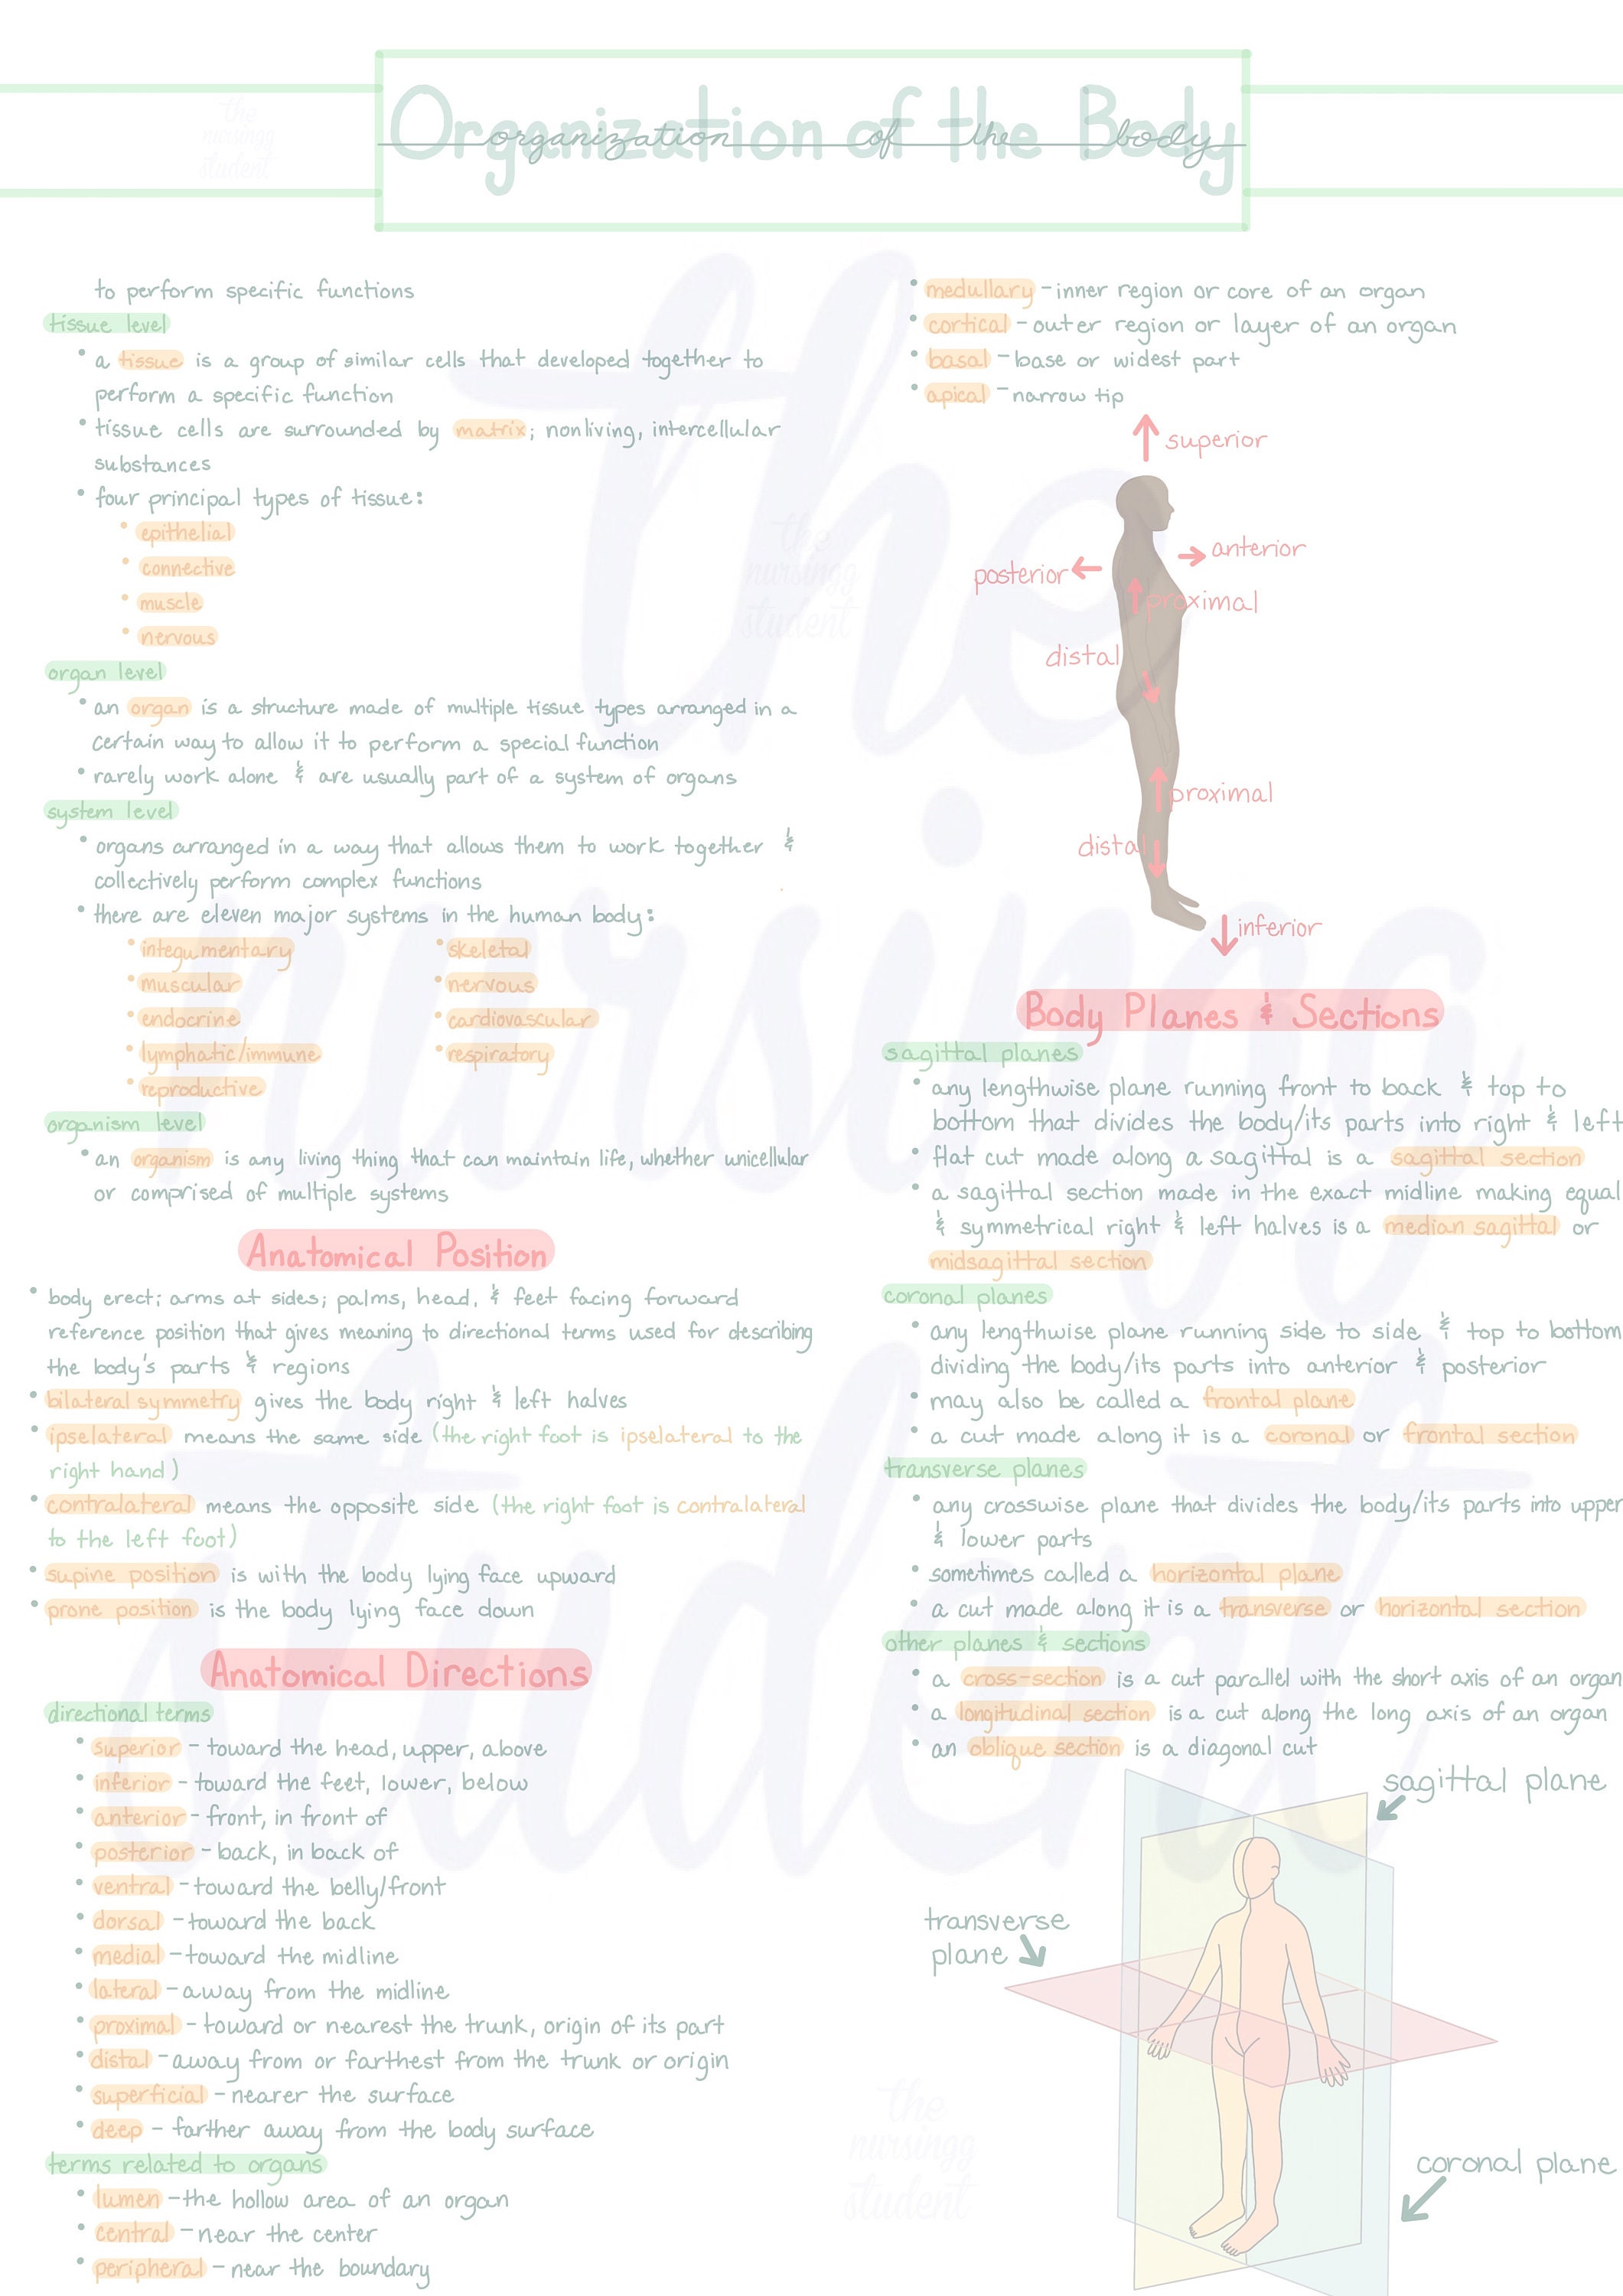 Organization of the Body
organization of the body
the
nursingg
student
to perform specific functions
tissue level
• a tissue is a group of similar cells that developed together to
perform a specific function
• tissue cells are surrounded by matrix; nonliving, intercellular
substances
• four principal types of tissue:
• epithelial
• connective
• muscle
• nervous
organ level
• an organ is a structure made of multiple tissue types arranged in a
certain way to allow it to perform a special function
• rarely work alone & are usually part of a system of organs
system level
• organs arranged in a way that allows them to work together &
collectively perform complex functions
• there are eleven major systems in the human body:
• integumentary • skeletal
• muscular • nervous
• endocrine • cardiovascular
• lymphatic/immune • respiratory
• reproductive
organism level
• an organism is any living thing that can maintain life, whether unicellular
or comprised of multiple systems
Anatomical Position
• body erect; arms at sides; palms, head, & feet facing forward
reference position that gives meaning to directional terms used for describing
the body's parts & regions
• bilateral symmetry gives the body right & left halves
• ipselateral means the same side (the right foot is ipselateral to the
right hand)
• contralateral means the opposite side (the right foot is contralateral
to the left foot)
• supine position is with the body lying face upward
• prone position is the body lying face down
Anatomical Directions
directional terms
• superior - toward the head, upper, above
• inferior - toward the feet, lower, below
• anterior - front, in front of
• posterior - back, in back of
• ventral - toward the belly/front
• dorsal - toward the back
• medial - toward the midline
• lateral - away from the midline
• proximal - toward or nearest the trunk, origin of its part
• distal - away from or farthest from the trunk or origin
• superficial - nearer the surface
• deep - farther away from the body surface
terms related to organs
• lumen - the hollow area of an organ
• central - near the center
• peripheral - near the boundary
• medullary - inner region or core of an organ
• cortical - outer region or layer of an organ
• basal - base or widest part
• apical - narrow tip
superior
anterior
posterior
proximal
distal
proximal
distal
inferior
Body Planes & Sections
sagittal planes
• any lengthwise plane running front to back & top to
bottom that divides the body/its parts into right & left
• flat cut made along a sagittal is a sagittal section
• a sagittal section made in the exact midline making equal
& symmetrical right & left halves is a median sagittal or
midsagittal section
coronal planes
• any lengthwise plane running side to side & top to bottom
dividing the body/its parts into anterior & posterior
• may also be called a frontal plane
• a cut made along it is a coronal or frontal section
transverse planes
• any crosswise plane that divides the body/its parts into upper
& lower parts
• sometimes called a horizontal plane
• a cut made along it is a transverse or horizontal section
other planes & sections
• a cross-section is a cut parallel with the short axis of an organ
• a longitudinal section is a cut along the long axis of an organ
• an oblique section is a diagonal cut
sagittal plane
transverse
plane
coronal plane
the
nursingg
student
the
nursingg
student
the
nursingg
student